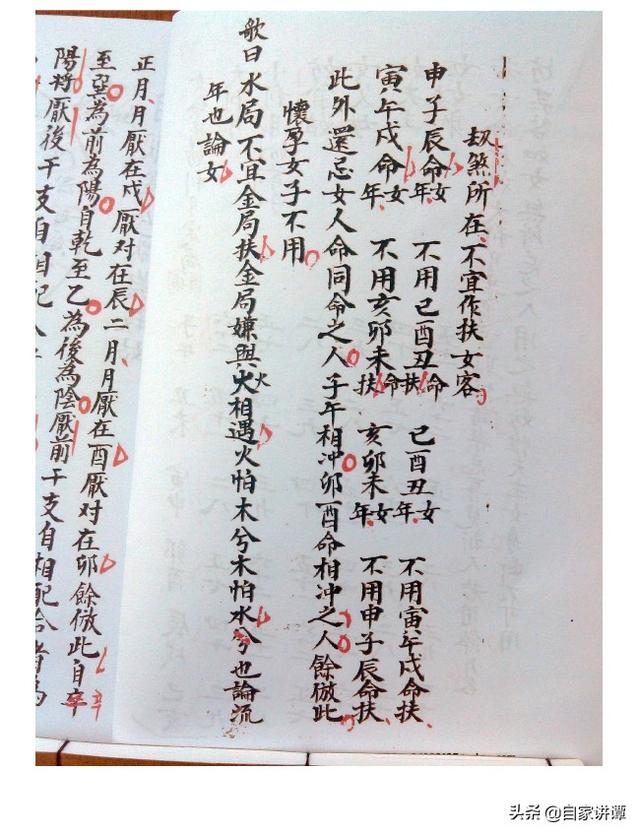 刧煞所在不宜作扶女客
申子辰命女年 不用已酉丑命扶 已酉丑女年 不用寅午戌命扶
寅午戌命女年 不用亥卯未命扶 亥卯未女年 不用申子辰命扶
此外還忌女人命同命之人子午相冲卯酉命相冲之人餘倣此
懷孕女子不用
歌曰水局不宜金局扶金局嫌與火相遇火怕木兮木怕水兮也論流
年也論女
正月月厭在戌厭对在辰二月月厭在酉厭对在卯餘倣此自辛
至巽為前為陽自乾至乙為後為陰厭前干支自相配合者為
陽將厭後干支自相配
头条 @自家讲谭